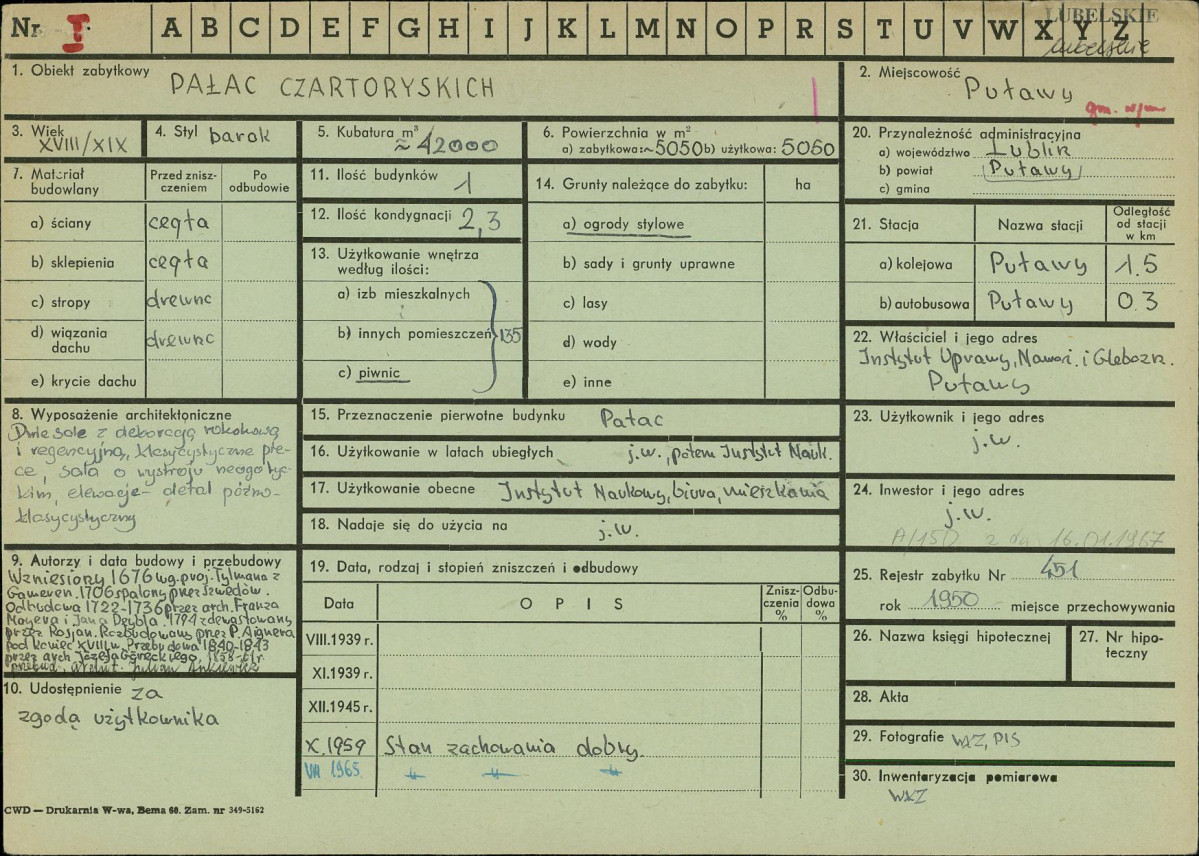 Nr I A B C D E F G H I J K L M N O P R S T U V W X Y Z
LUBELSKIE
lubelskie
1. Obiekt zabytkowy
PAŁAC CZARTORYSKICH
2. Miejscowość
Puławy
gm. w/m
3. Wiek
XVIII/XIX
4. Styl barok
5. Kubatura m³
≈ 42000
6. Powierzchnia w m²
a) zabytkowa: ~5050 b) użytkowa: 5060
7. Materiał budowlany
Przed zniszczeniem
Po odbudowie
a) ściany cegła
b) sklepienia cegła
c) stropy drewno
d) wiązania dachu drewno
e) krycie dachu
8. Wyposażenie architektoniczne
Dwie sale z dekoracją rokokową
i regencyjną, klasycystyczne pie-
ce, sala o wystroju neogotyc-
kim, elewacje – detal późno-
klasycystyczny
9. Autorzy i data budowy i przebudowy
Wzniesiony 1676 wg. proj. Tylmana z
Gameren. 1706 spalony przez Szwedów.
Odbudowa 1722-1736 przez arch. Franza
Mayera i Jana Deybla. 1794 zdewastowany
przez Rosjan. Rozbudowany przez P. Aignera
pod koniec XVIII w. Przebudowa 1840-1843
przez arch Józefa Góreckiego, 1858-61 r.
przebud. Julian Ankiewicz
10. Udostępnienie za
zgodą użytkownika
11. Ilość budynków 1
12. Ilość kondygnacji 2,3
13. Użytkowanie wnętrza
według ilości:
a) izb mieszkalnych
b) innych pomieszczeń 135
c) piwnic
14. Grunty należące do zabytku: ha
a) ogrody stylowe
b) sady i grunty uprawne
c) lasy
d) wody
e) inne
15. Przeznaczenie pierwotne budynku Pałac
16. Użytkowanie w latach ubiegłych j.w., potem Instytut Nauk.
17. Użytkowanie obecne Instytut Naukowy, biura, mieszkania
18. Nadaje się do użycia na j.w.
19. Data, rodzaj i stopień zniszczeń i odbudowy
Data OPIS Zniszczenia % Odbudowa %
VIII.1939 r.
XI.1939 r.
XII.1945 r.
X.1959 Stan zachowania dobry.
VII 1965 –"– –"– –"–
20. Przynależność administracyjna
a) województwo Lublin
b) powiat Puławy
c) gmina
21. Stacja Nazwa stacji Odległość od stacji w km
a) kolejowa Puławy 1.5
b) autobusowa Puławy 0.3
22. Właściciel i jego adres
Instytut Uprawy, Nawoż. i Glebozn.
Puławy
23. Użytkownik i jego adres
j.w.
24. Inwestor i jego adres
j.w.
A/150 z dn 16.01.1967
25. Rejestr zabytku Nr 451
rok 1950 miejsce przechowywania
26. Nazwa księgi hipotecznej
27. Nr hipoteczny
28. Akta
29. Fotografie WKZ, PIS
30. Inwentaryzacja pomiarowa
WKZ
CWD — Drukarnia W-wa, Bema 60. Zam. nr 349-5162